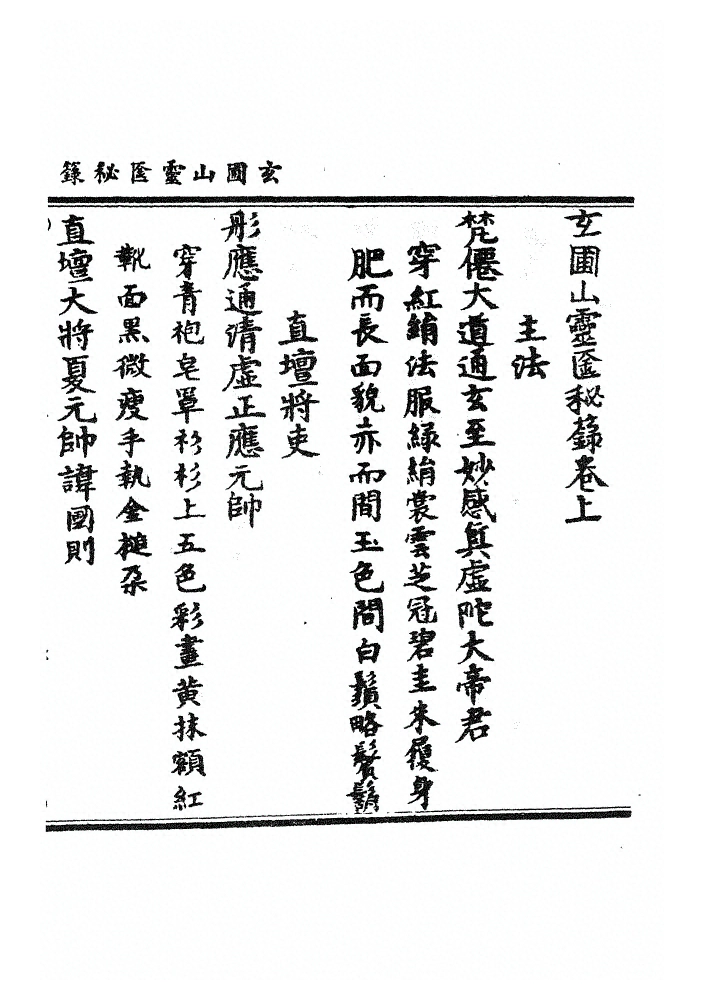 玄圃山靈匲秘籙
玄圃山靈匲秘籙卷上
主法
梵僊大道通玄至妙感真虛陀大帝君
穿紅綃法服綠絹裳雲芝冠碧圭朱履身
肥而長面貌亦而間玉色間白鬚略鬢鬍
直壇將吏
彤應通清虛正應元帥
穿青袍皂罩衫衫上五色彩畫黃抹額紅
靴面黑微瘦手執金槌朶
直壇大將夏元帥諱國則